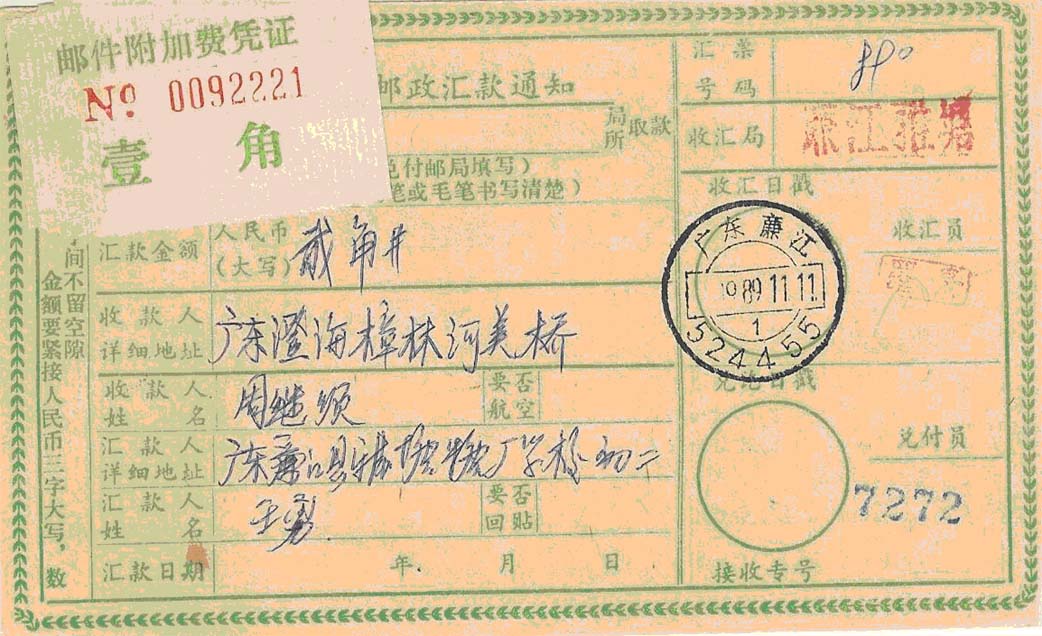 邮件附加费凭证
No 0092221
壹角
邮政汇款通知
局所取款
兑付邮局填写)
笔或毛笔书写清楚)
汇票号码
收汇局
收汇日戳
收汇员
汇款金额
人民币(大写)
贰角
收款人详细地址
广东澄海樟林河美桥
收款人姓名
周继
要否航空
汇款人详细地址
广东廉江县
糖厂学校初二
汇款人姓名
王勇
要否回贴
汇款日期
年 月 日
广东廉江
1989.11.11.
1
524455
兑讫日戳
兑付员
7272
接收专号
间不留空隙
金额要紧接人民币三字大写,数